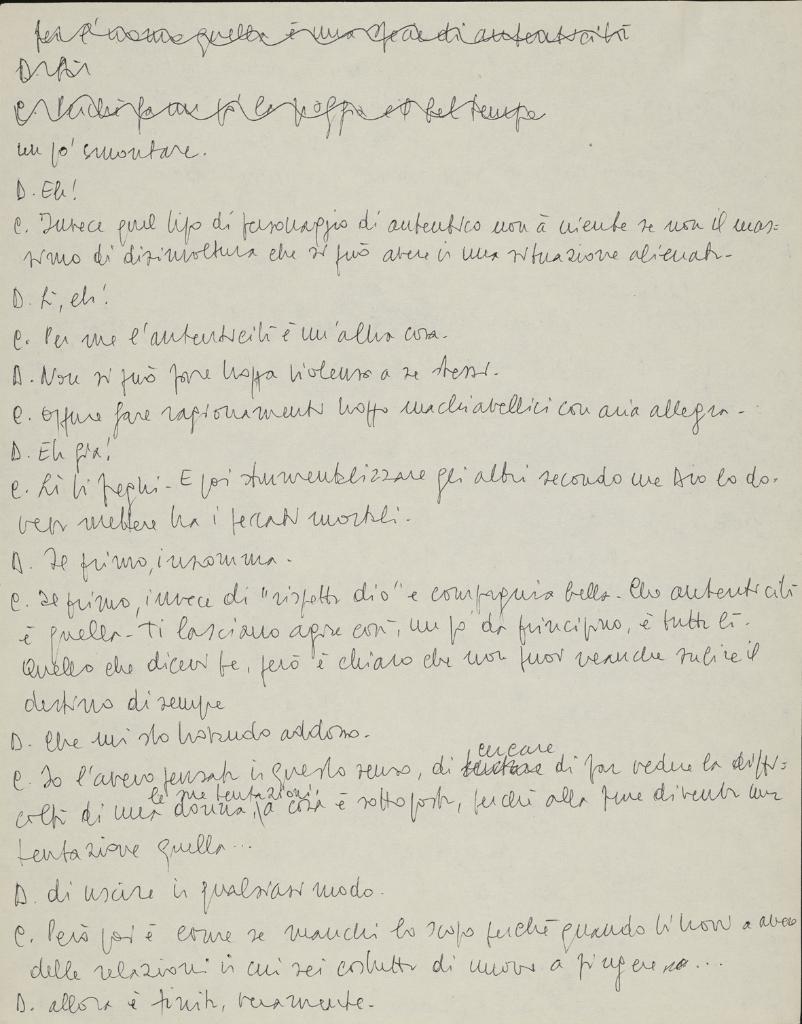 per l'uomo quella è una speme di autenticità
D. Poi
un po' smontare.
D. Eh!
C. Invece quel tipo di personaggio di autentico non à niente se non il mas-
simo di disinvoltura che si può avere in una situazione alienata.
D. Lì, eh!
C. Per me l'autenticità è un'altra cosa.
D. Non si può fare troppa violenza a se stessi.
C. Oppure fare ragionamenti troppo machiavellici con aria allegra.
D. Eh già!
C. Lì ti freghi. E poi strumentalizzare gli altri secondo me Dio lo do-
veva mettere tra i peccati mortali.
D. Il primo, insomma.
C. Il primo, invece di "rispetta dio" e compagnia bella. Che autenticità
è quella. Ti lasciano agire così, un po' da principino, è tutto lì.
Quello che dicevi te, però è chiaro che non puoi neanche subire il
destino di sempre
D. Che mi sto trovando addosso.
C. Io l'avevo pensato in questo senso, di cercare di far vedere la diffi-
coltà di una donna, le sue tentazioni, a cosa è sottoposta, perché alla fine diventa una
tentazione quella...
D. di uscire in qualsiasi modo.
C. Però poi è come se manchi lo scopo perché quando ti trovi a avere
delle relazioni in cui sei costretta di nuovo a fingere...
D. allora è finita, veramente.